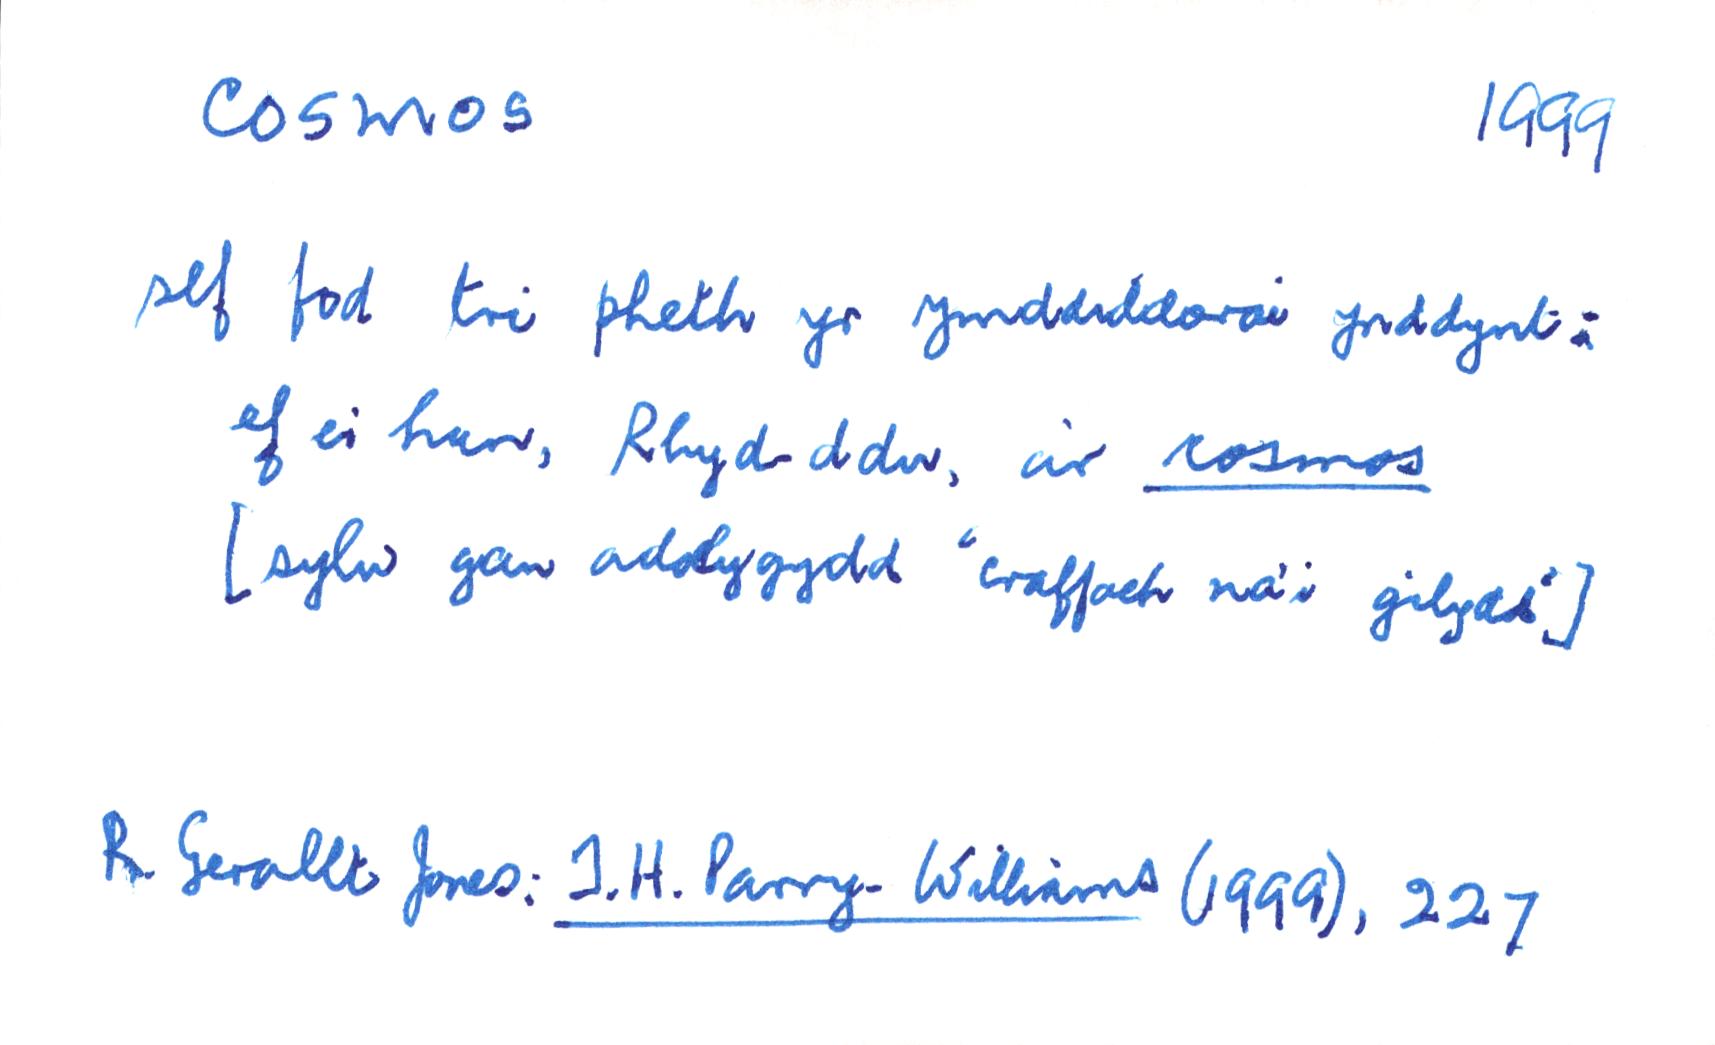 cosmos 1999
sef fod tri pheth yr ymddiddorai ynddynt:
ef ei hun, Rhyd-ddu, a'r cosmos
[sylw gan adolygydd "craffach na'i gilydd"]
R. Gerallt Jones: T.H. Parry-Williams (1999), 227